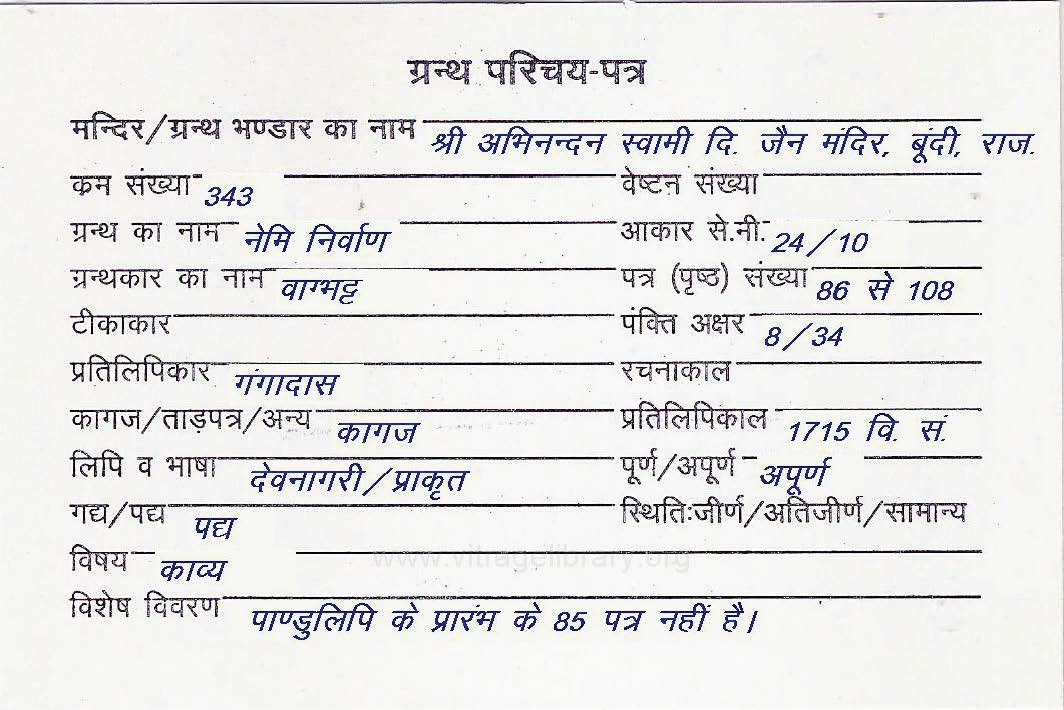 ग्रन्थ परिचय-पत्र
मन्दिर/ग्रन्थ भण्डार का नाम श्री अभिनन्दन स्वामी दि. जैन मंदिर, बूंदी, राज.
क्रम संख्या 343 वेष्टन संख्या
ग्रन्थ का नाम नेमि निर्वाण आकार से.मी. 24/10
ग्रन्थकार का नाम वाग्भट्ट पत्र (पृष्ठ) संख्या 86 से 108
टीकाकार पंक्ति अक्षर 8/34
प्रतिलिपिकार गंगादास रचनाकाल
कागज/ताड़पत्र/अन्य कागज प्रतिलिपिकाल 1715 वि. सं.
लिपि व भाषा देवनागरी/प्राकृत पूर्ण/अपूर्ण अपूर्ण
गद्य/पद्य पद्य स्थितिःजीर्ण/अतिजीर्ण/सामान्य
विषय काव्य www.vitragelibrary.org
विशेष विवरण पाण्डुलिपि के प्रारंभ के 85 पत्र नहीं है।